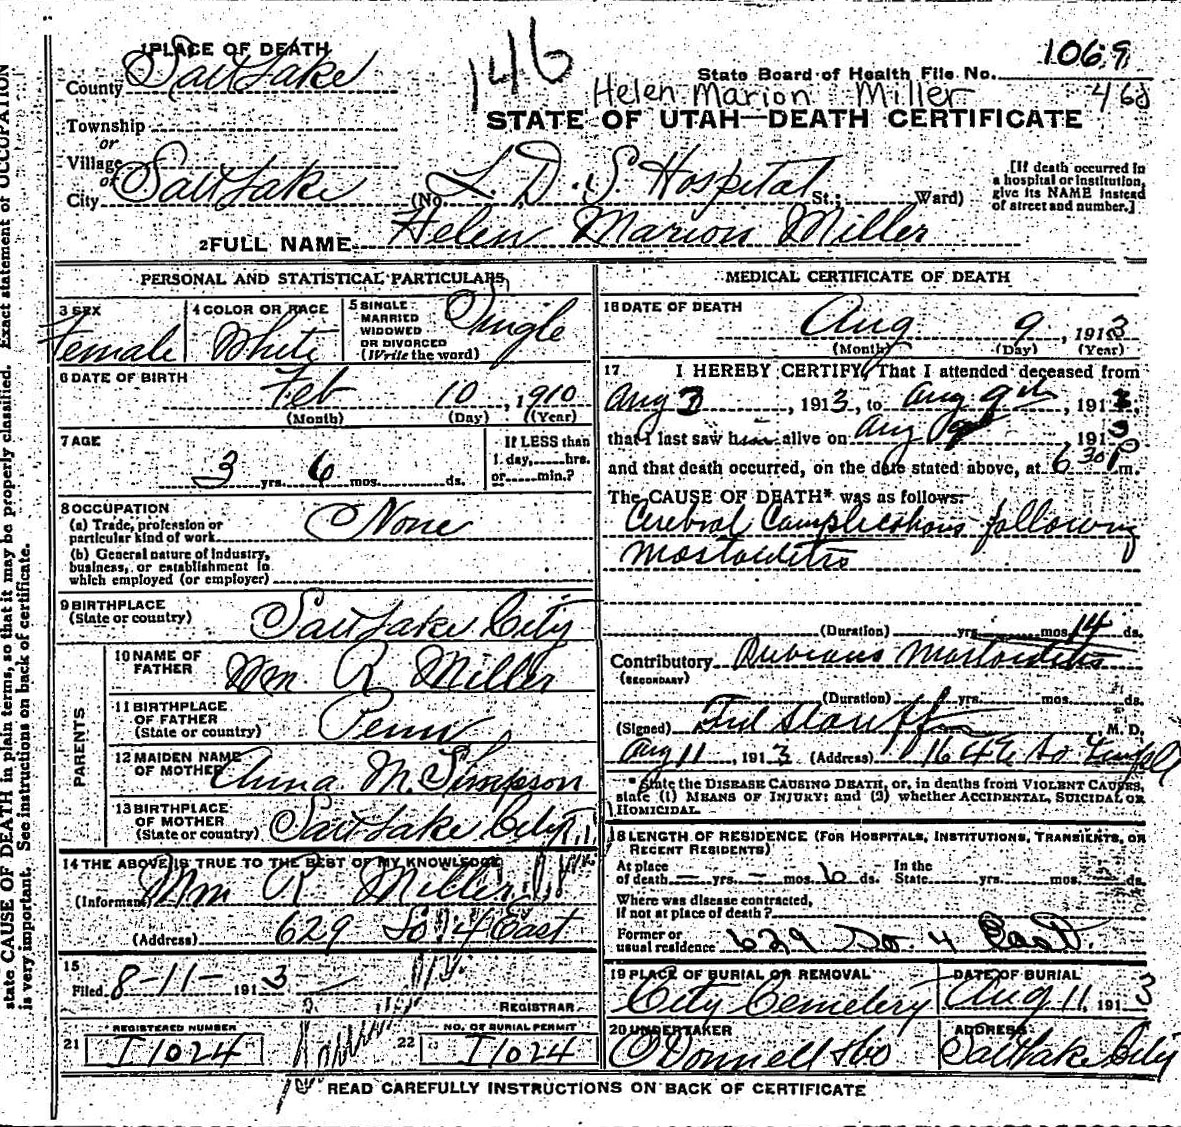 146
1069
State Board of Health File No.
Helen Marion Miller 468
STATE OF UTAH—DEATH CERTIFICATE
1 PLACE OF DEATH
County Salt Lake
Township
or
Village
or
City Salt Lake (No. L. D. S Hospital St.; Ward)
[If death occurred in
a hospital or institution,
give its NAME instead
of street and number.]
2 FULL NAME Helen Marion Miller
PERSONAL AND STATISTICAL PARTICULARS
3 SEX
Female
4 COLOR OR RACE
White
5 SINGLE
MARRIED
WIDOWED
OR DIVORCED
(Write the word)
Single
6 DATE OF BIRTH
Feb 10, 1910
(Month) (Day) (Year)
7 AGE
3 yrs. 6 mos. ds.
If LESS than
1 day, hrs.
or min.?
8 OCCUPATION
(a) Trade, profession or
particular kind of work None
(b) General nature of Industry,
business, or establishment in
which employed (or employer)
9 BIRTHPLACE
(State or country) Salt Lake City
PARENTS
10 NAME OF
FATHER Wm R Miller
11 BIRTHPLACE
OF FATHER
(State or country) Penn
12 MAIDEN NAME
OF MOTHER Anna M. Simpson
13 BIRTHPLACE
OF MOTHER
(State or country) Salt Lake City
14 THE ABOVE IS TRUE TO THE BEST OF MY KNOWLEDGE
(Informant) Wm R Miller
(Address) 629 So. 4 East
15
Filed 8-11- 1913
REGISTRAR
REGISTERED NUMBER
21 I1024
NO. OF BURIAL PERMIT
22 I1024
MEDICAL CERTIFICATE OF DEATH
16 DATE OF DEATH
Aug 9, 1913
(Month) (Day) (Year)
17 I HEREBY CERTIFY, That I attended deceased from
Aug 3, 1913, to Aug 9th, 1913,
that I last saw him alive on Aug 9, 1913
and that death occurred, on the date stated above, at 6 30 P m.
The CAUSE OF DEATH* was as follows:
Cerebral Complications following
Mastoiditis
(Duration) yrs. mos. 14 ds.
Contributory Mastoiditis
(SECONDARY)
(Duration) yrs. mos. ds.
(Signed) Stauffer M. D.
Aug 11, 1913 (Address) So Temple
* State the DISEASE CAUSING DEATH, or, in deaths from VIOLENT CAUSES,
state (1) MEANS OF INJURY: and (2) whether ACCIDENTAL, SUICIDAL OR
HOMICIDAL.
18 LENGTH OF RESIDENCE (FOR HOSPITALS, INSTITUTIONS, TRANSIENTS, OR
RECENT RESIDENTS)
At place
of death — yrs. — mos. 6 ds. In the
State yrs. mos. ds.
Where was disease contracted,
if not at place of death?
Former or
usual residence 629 So. 4 East.
19 PLACE OF BURIAL OR REMOVAL
City Cemetery
DATE OF BURIAL
Aug 11, 1913
20 UNDERTAKER
O'Donnell & Co
ADDRESS
Salt Lake City
READ CAREFULLY INSTRUCTIONS ON BACK OF CERTIFICATE
state CAUSE OF DEATH in plain terms, so that it may be properly classified. Exact statement of OCCUPATION
is very important. See instructions on back of certificate.